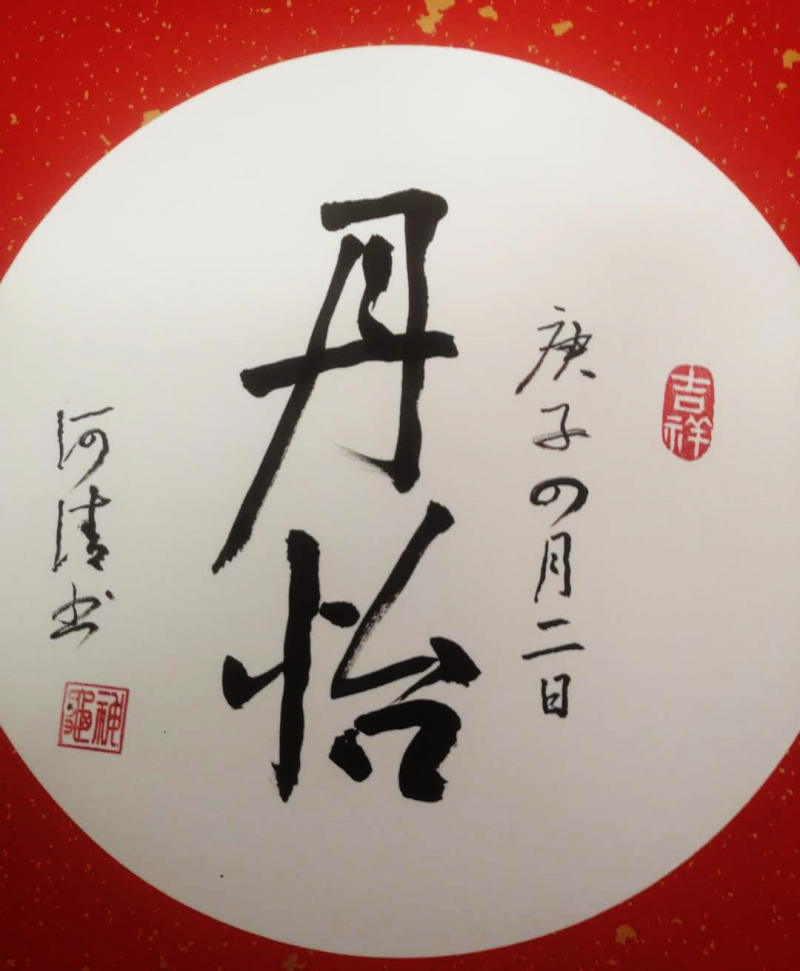 吉祥
庚子四月二日
丹怡
河清书